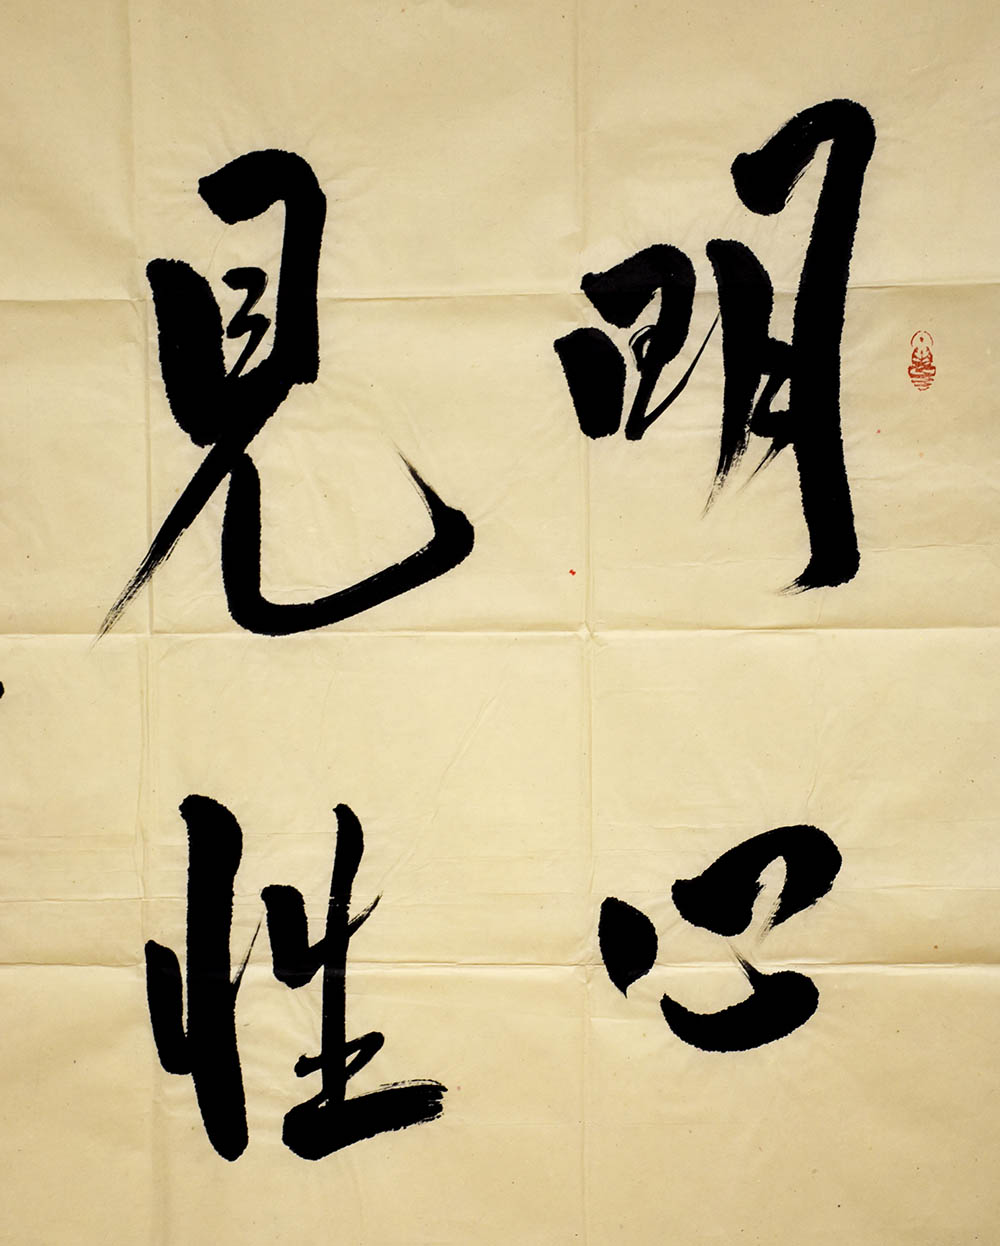 明心
見性